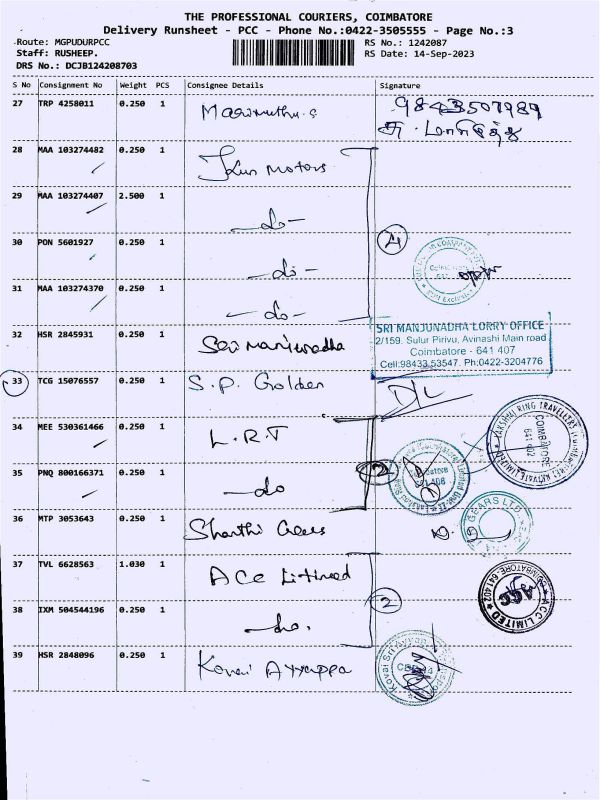 THE PROFESSIONAL COURIERS, COIMBATORE
Delivery Runsheet - PCC - Phone No.:0422-3505555 - Page No.:3
Route: MGPUDURPCC RS No.: 1242087
Staff: RUSHEEP. RS Date: 14-Sep-2023
DRS No.: DCJB124208703
S No Consignment No Weight PCS Consignee Details Signature
27 TRP 4258011 0.250 1 Marimuthu.S 9843507989
28 MAA 103274482 0.250 1 Motors
29 MAA 103274407 2.500 1 -do-
30 PON 5601927 0.250 1 -do- 4
31 MAA 103274370 0.250 1 -do-
32 HSR 2845931 0.250 1 Sri Manjunadha
SRI MANJUNADHA LORRY OFFICE
2/159, Sulur Pirivu, Avinashi Main road
Coimbatore - 641 407
Cell:98433 53547. Ph:0422-3204776
33 TCG 15076557 0.250 1 S.P. Golden D/L
34 MEE 530361466 0.250 1 L.R.T
35 PNQ 800166371 0.250 1 -do 2
36 MTP 3053643 0.250 1 Shanthi Gears
GEARS LTD
37 TVL 6628563 1.030 1 ACC Limited
38 IXM 504544196 0.250 1 -do. 2
ACC LIMITED COIMBATORE-641 402
39 HSR 2848096 0.250 1 Kovai Ayyappa